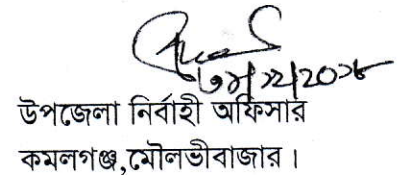 উপজেলা নির্বাহী অফিসার
কমলগঞ্জ,মৌলভীবাজার।